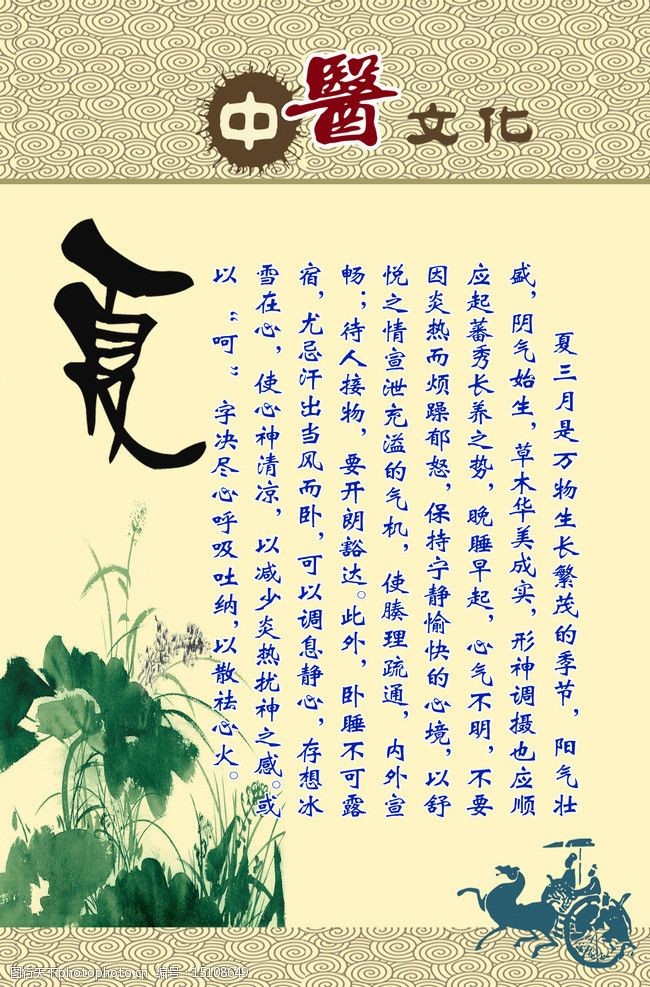 中醫文化
夏
夏三月是万物生长繁茂的季节，阳气壮
盛，阴气始生，草木华美成实，形神调摄也应顺
应起蕃秀长养之势，晚睡早起，心气不明，不要
因炎热而烦躁郁怒，保持宁静愉快的心境，以舒
悦之情宣泄充溢的气机，使腠理疏通，内外宣
畅；待人接物，要开朗豁达。此外，卧睡不可露
宿，尤忌汗出当风而卧，可以调息静心，存想冰
雪在心，使心神清凉，以减少炎热扰神之感。或
以“呵”字决尽心呼吸吐纳，以散祛心火。
图行天下photophoto.cn 编号：15108649